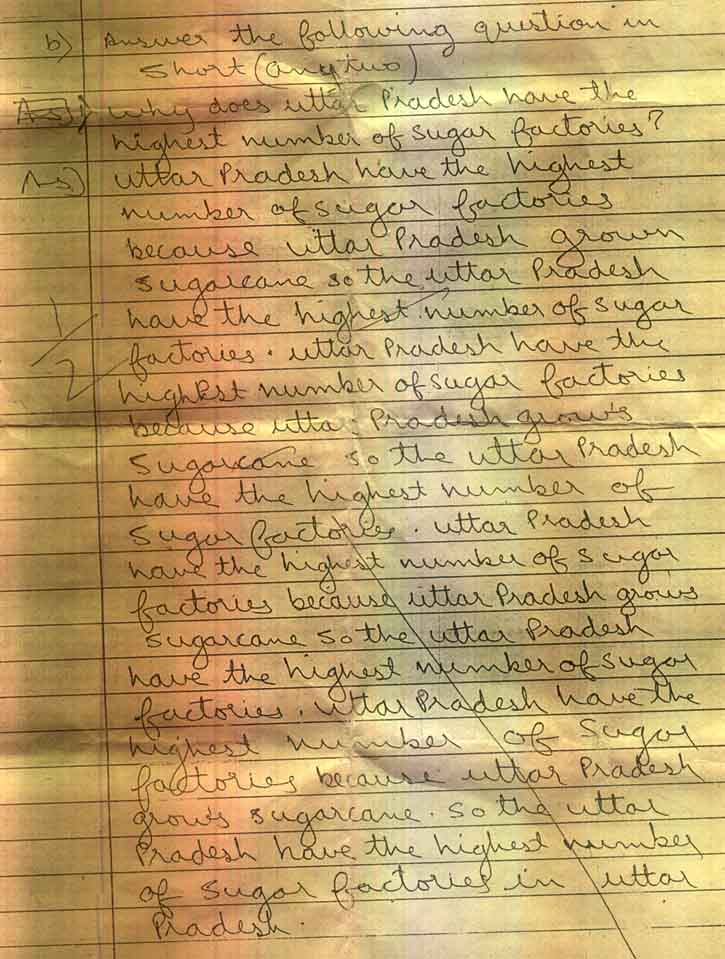 b) Answer the following question in
short (any two)
As) why does uttar Pradesh have the
highest number of sugar factories?
As) uttar Pradesh have the highest
number of sugar factories
because uttar Pradesh grown
sugarcane so the uttar Pradesh
have the highest number of sugar
factories. uttar Pradesh have the
highest number of sugar factories
because utta Pradesh grows
sugarcane so the uttar Pradesh
have the highest number of
sugar factories. uttar Pradesh
have the highest number of sugar
factories because uttar Pradesh grows
sugarcane so the uttar Pradesh
have the highest number of sugar
factories. uttar Pradesh have the
highest number of sugar
factories because uttar Pradesh
grows sugarcane. so the uttar
Pradesh have the highest number
of sugar factories in uttar
Pradesh.
1/2